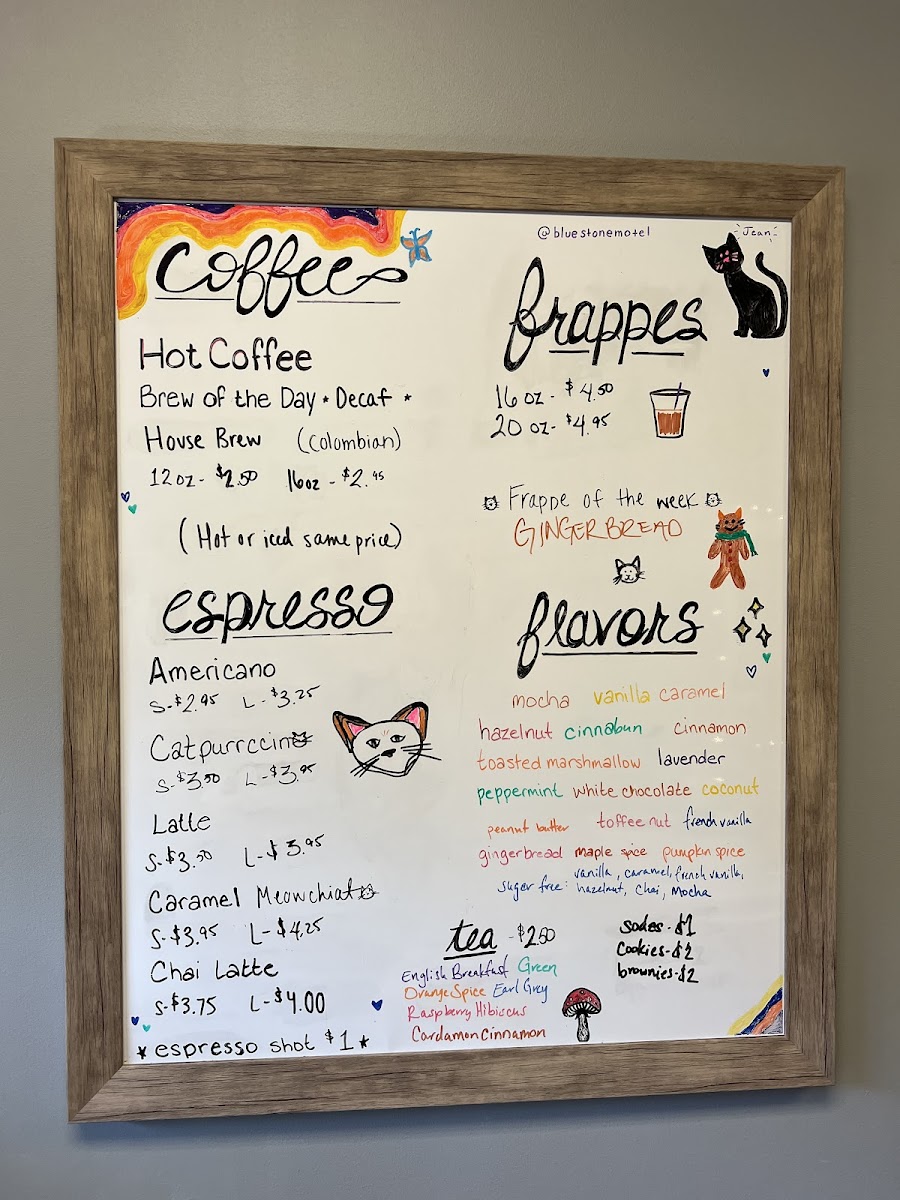 Coffee
Hot Coffee
Brew of the Day * Decaf *
House Brew (Colombian)
12oz- $2.50 16oz - $2.95
(Hot or iced same price)
espresso
Americano
S-$2.95 L-$3.25
Catpurrccino
S-$3.50 L-$3.95
Latte
S-$3.50 L-$3.95
Caramel Meowchiato
S-$3.95 L-$4.25
Chai Latte
S-$3.75 L-$4.00
* espresso shot $1 *
@bluestonemotel
-Jean-
frappes
16 oz- $4.50
20 oz- $4.95
Frappe of the week
GINGERBREAD
flavors
mocha vanilla caramel
hazelnut cinnabun cinnamon
toasted marshmallow lavender
peppermint white chocolate coconut
peanut butter toffee nut french vanilla
gingerbread maple spice pumpkin spice
sugar free: vanilla, caramel, french vanilla,
hazelnut, chai, mocha
tea -$2.50
English Breakfast Green
Orange Spice Earl Grey
Raspberry Hibiscus
Cardamon Cinnamon
sodas-$1
cookies-$2
brownies-$2